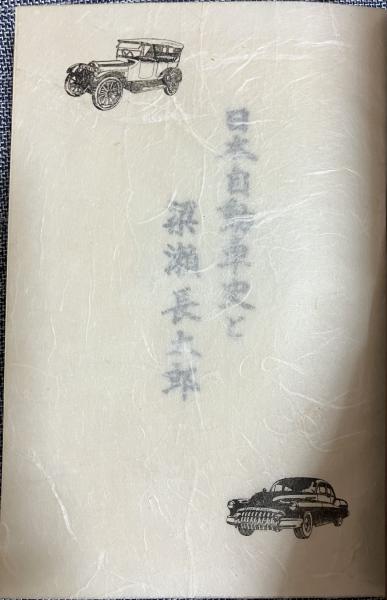 日本自動車史と
梁瀬長太郎